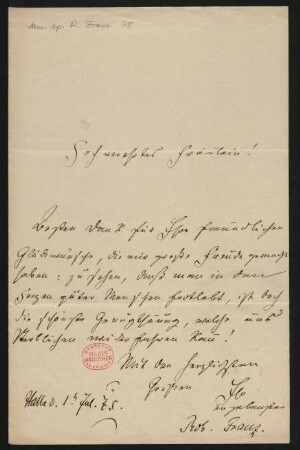 Mus. ep. R. Franz 75
Hochverehrtes Fräulein!
Besten Dank für Ihre freundlichen
Glückwünsche, die mir große Freude gemacht
haben: zu sehen, daß man in den
Herzen guter Menschen fortlebt, ist doch
die schönste Genugthuung, welche uns
Sterblichen widerfahren kann!
Mit den herzlichsten
Grüßen
Ihr
ergebenster
Halle d. 1t Jul. 75.
Rob. Franz.